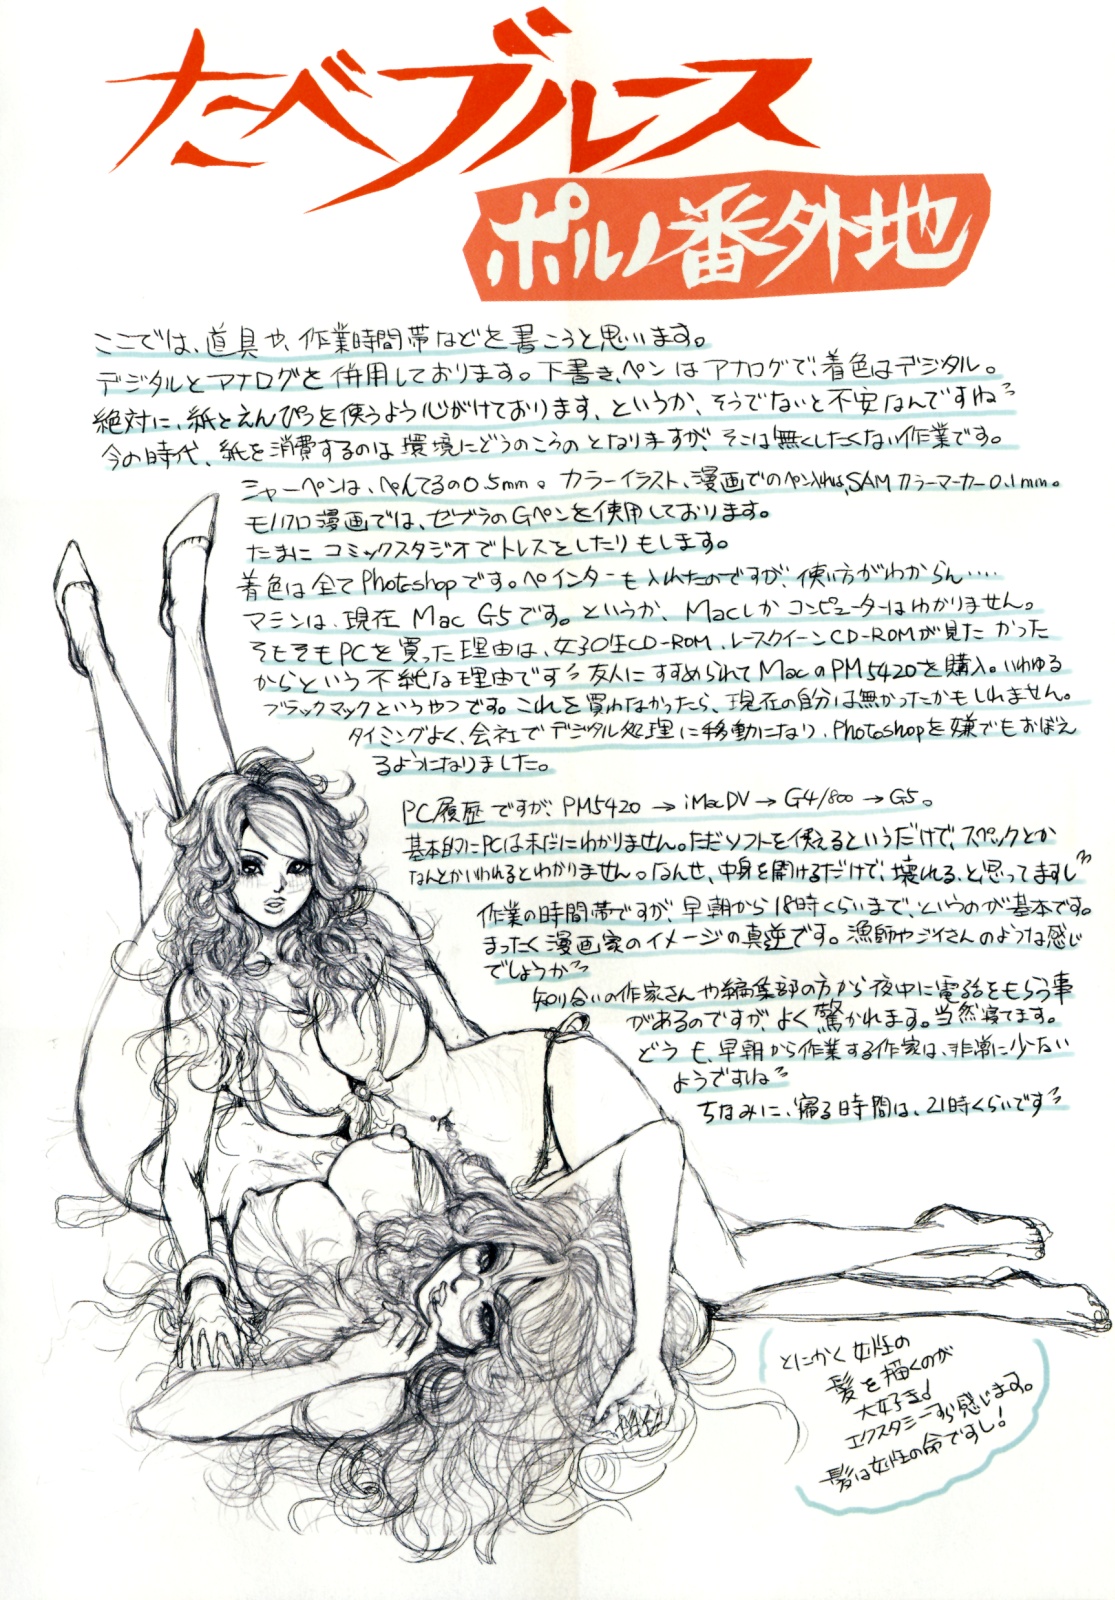 たべブルース
ポルノ番外地
ここでは、道具や、作業時間帯などを書こうと思います。
デジタルとアナログを併用しております。下書き、ペンはアナログで、着色はデジタル。
絶対に、紙とえんぴつを使うよう心がけております、というか、そうでないと不安なんですね
今の時代、紙を消費するのは環境にどうのこうのとなりますが、そこは無くしたくない作業です。
シャーペンは、ぺんてるの0.5mm。カラーイラスト、漫画でのペン入れは、SAMカラーマーカー0.1mm。
モノクロ漫画では、ゼブラのGペンを使用しております。
たまにコミックスタジオでトレスをしたりもします。
着色は全てPhotoshopです。ペインターも入れたのですが、使い方がわからん‥‥
マシンは、現在Mac G5です。というか、Macしかコンピューターはわかりません。
そもそもPCを買った理由は、女子校生CD-ROM、レースクイーンCD-ROMが見たかった
からという不純な理由です 友人にすすめられてMacのPM5420を購入。いわゆる
ブラックマックというやつです。これを買わなかったら、現在の自分は無かったかもしれません。
タイミングよく、会社でデジタル処理に移動になり、Photoshopを嫌でもおぼえ
るようになりました。
PC履歴ですが、PM5420→iMacDV→G4/800→G5。
基本的にPCは未だにわかりません。ただソフトを使えるというだけで、スペックとか
なんとかいわれるとわかりません。なんせ、中身を開けるだけで、壊れる、と思ってますし
作業の時間帯ですが、早朝から18時くらいまで、というのが基本です。
まったく漫画家のイメージの真逆です。漁師やジイさんのような感じ
でしょうか
知り合いの作家さんや編集部の方から夜中に電話をもらう事
があるのですが、よく驚かれます。当然寝てます。
どうも、早朝から作業する作家は、非常に少ない
ようですね
ちなみに、寝る時間は、21時くらいです
とにかく女性の
髪を描くのが
大好き!
エクスタシーすら感じます。
髪は女性の命ですし!